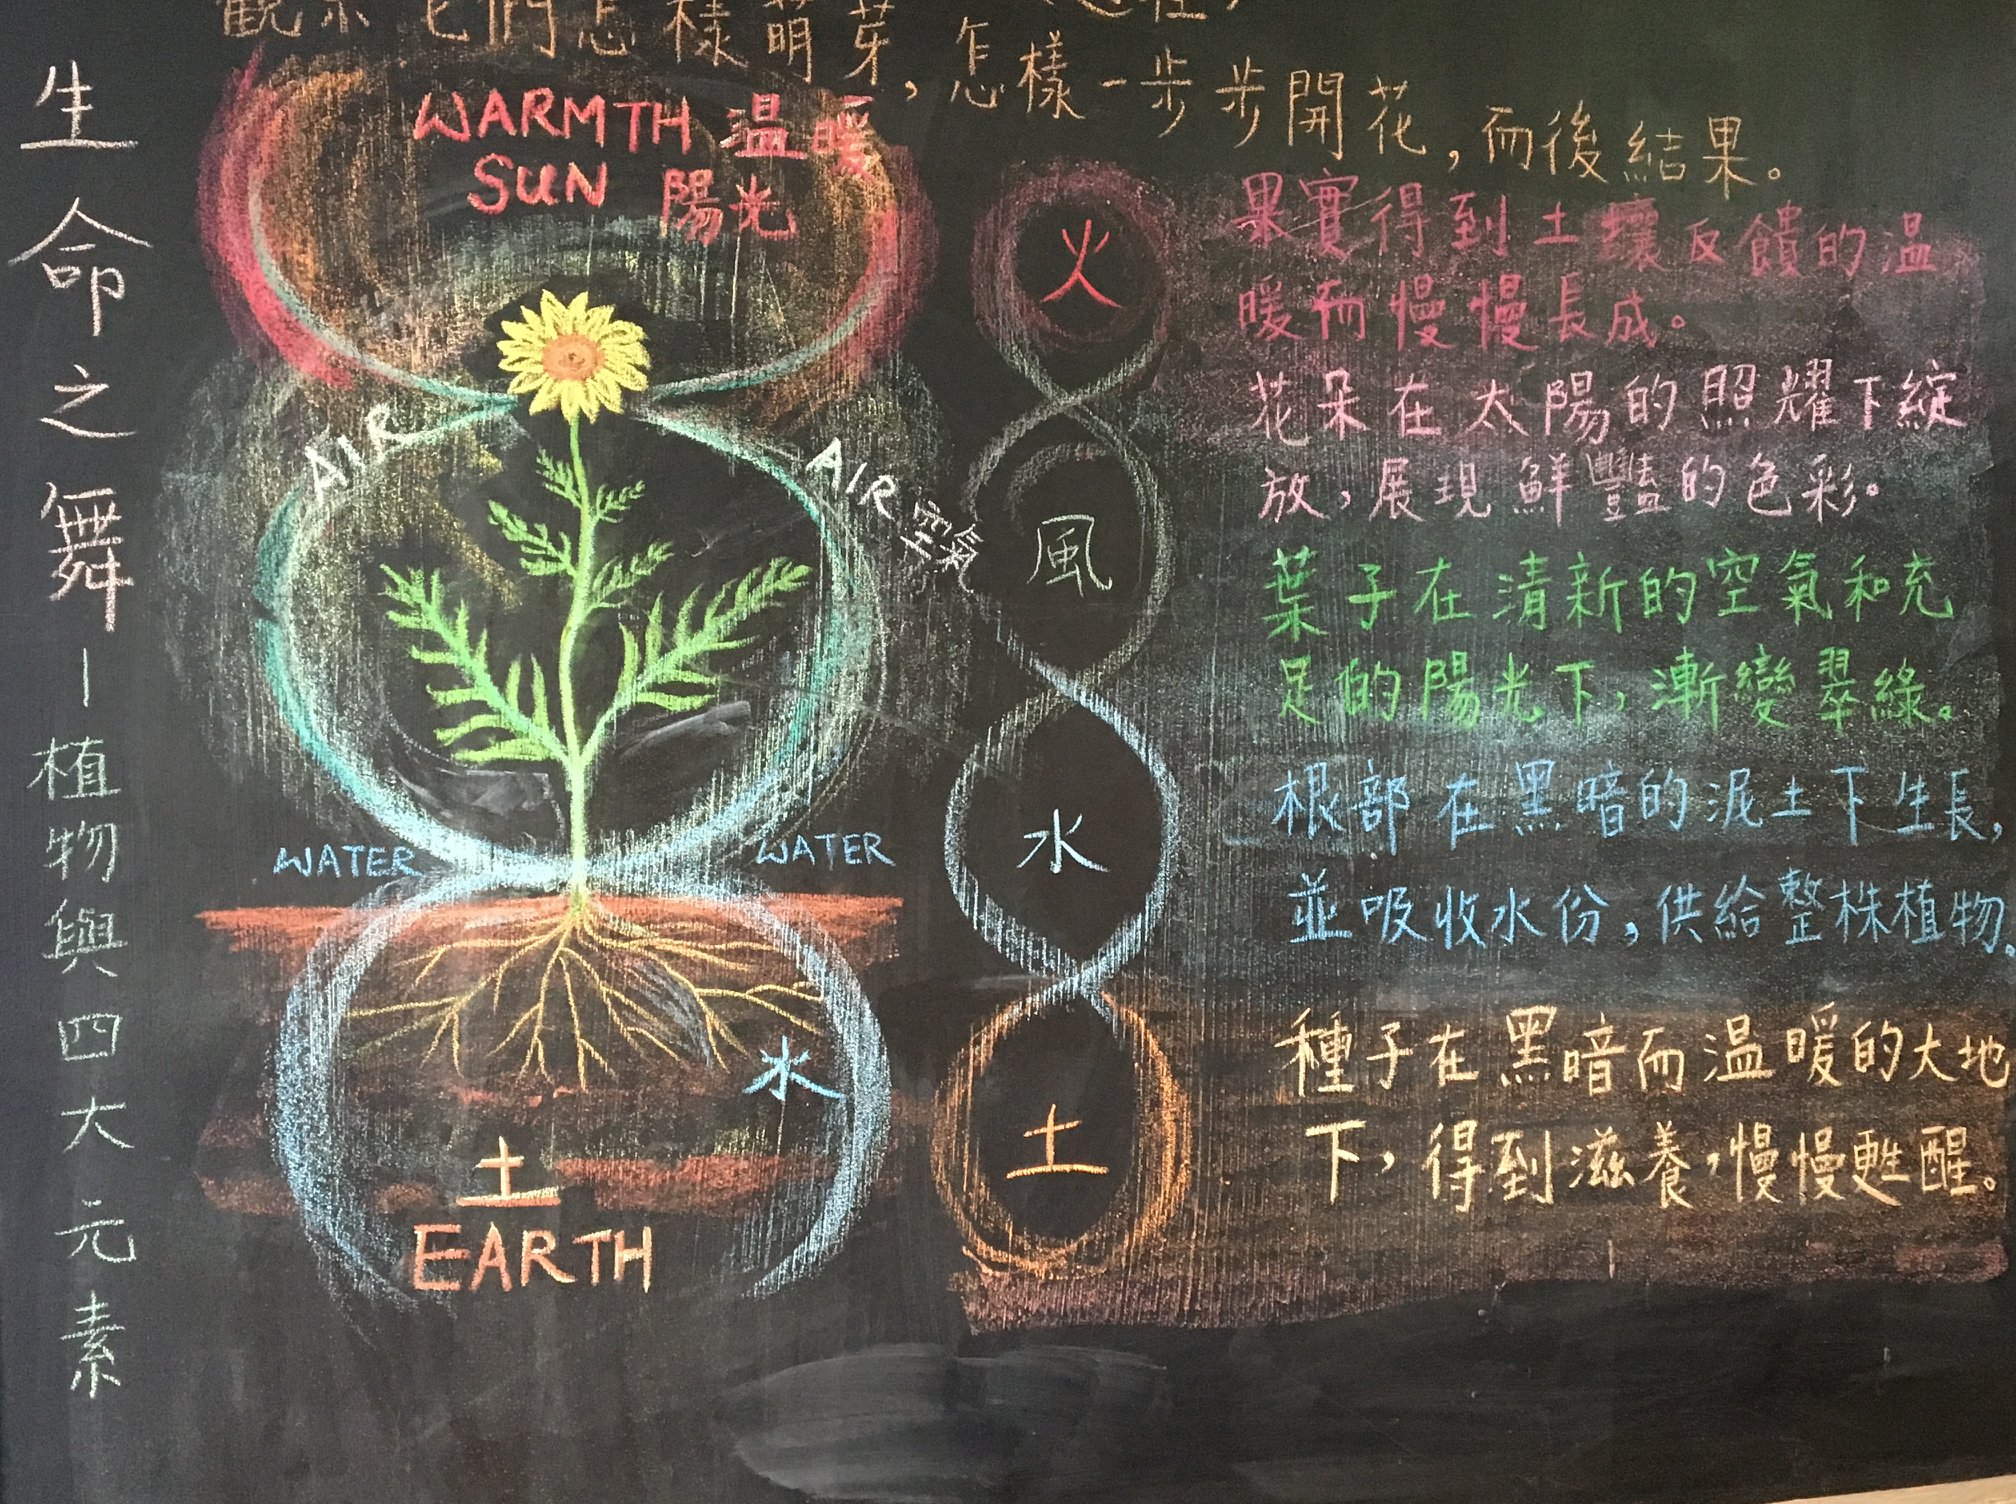 生命之舞－植物與四大元素
觀察它們怎樣萌芽，怎樣一步步開花，而後結果。
WARMTH 温暖
SUN 陽光
AIR
AIR 空氣
WATER
WATER
水
土
EARTH
火
風
水
土
果實得到土壤反饋的温
暖而慢慢長成。
花朵在太陽的照耀下綻
放，展現鮮豔的色彩。
葉子在清新的空氣和充
足的陽光下，漸變翠綠。
根部在黑暗的泥土下生長，
並吸收水份，供給整株植物。
種子在黑暗而温暖的大地
下，得到滋養，慢慢甦醒。